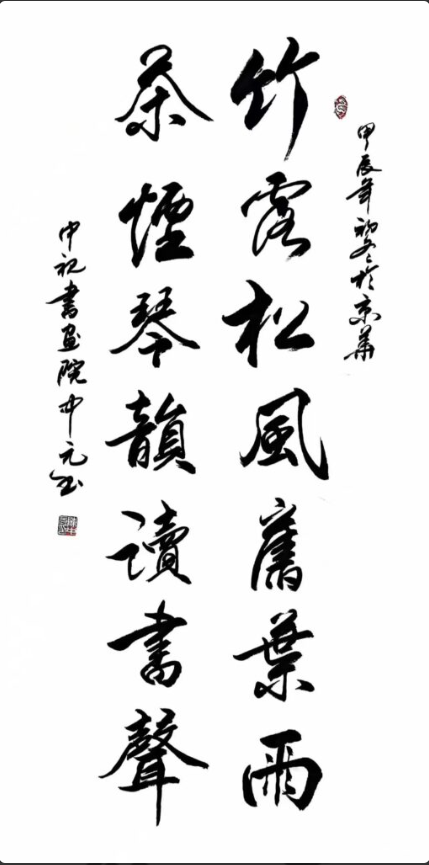 甲辰年初冬於京華
竹露松風蕉葉雨
茶煙琴韻讀書聲
中視書画院中元书